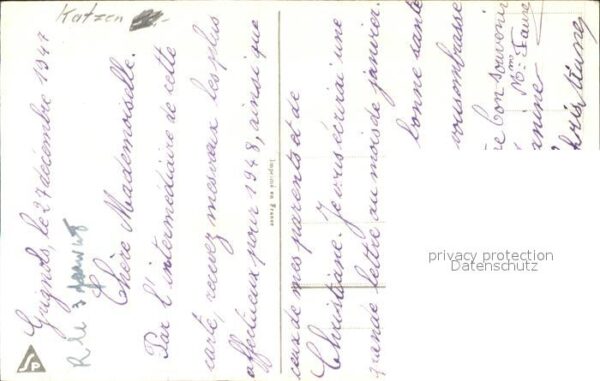 Katzen
Gugnots, le 27 décembre 1947
Chère Mademoiselle.
Par l'intermédiaire de cette
carte, recevez mes vœux les plus
affectueux pour 1948, ainsi que
ceux de mes parents et de
Christiane. Je vous écrirai une
grande lettre au mois de janvier.
bonne santé
vous embrasse
bon souvenir
Mme Faure
Imprimé en France
privacy protection
Datenschutz
SP